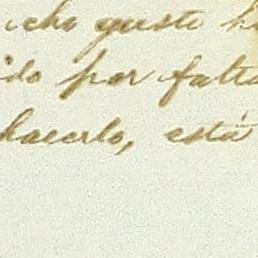 cho gusto h
ido por falta
hacerlo, está